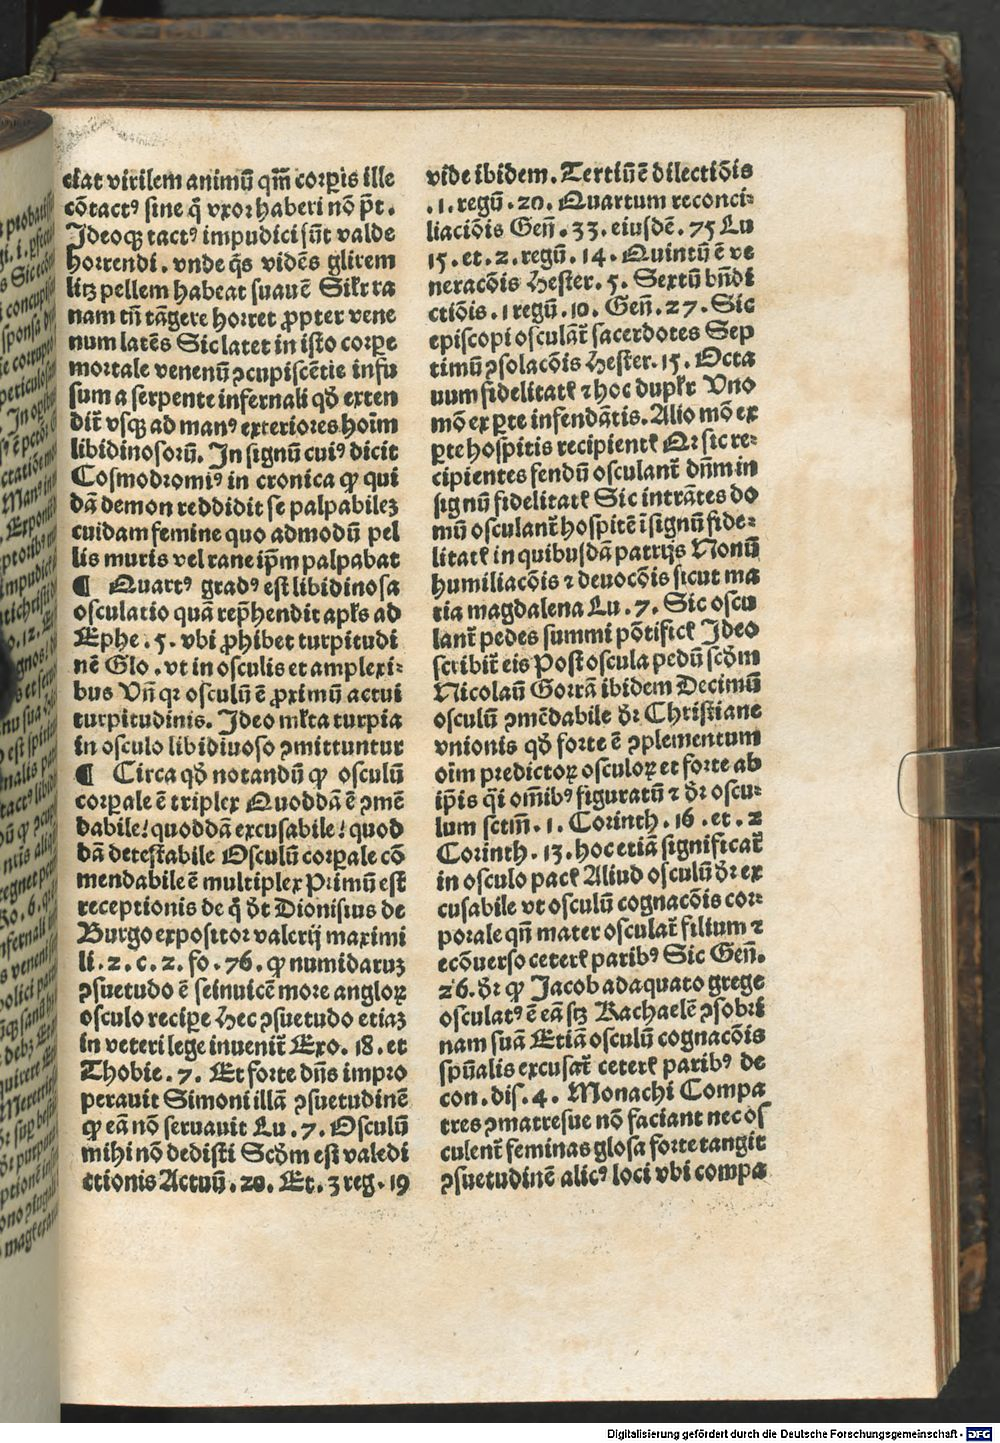 ciat virilem animū qm̄ corꝑis ille
cōtactꝰ sine q̄ vxor haberi nō p̄t.
Ideoqꝫ tactꝰ impudici sūt valde
horrendi. vnde q̄s vidēs glirem
litꝫ pellem habeat suauē Sikr ra
nam tn̄ tāgere horret ꝓpter vene
num latēs Sic latet in isto corpe
mortale venenū ꝯcupiscētie infu
sum a serpente infernali qd̄ exten
dit̄ vsqꝫ ad manꝰ exteriores hoīm
libidinosorū. In signū cuiꝰ dicit
Cosmodromiꝰ in cronica ꝙ qui
dā demon reddidit se palpabileꝫ
cuidam femine quo admodū pel
lis muris vel rane ip̄m palpabat
¶ Quartꝰ gradꝰ est libidinosa
osculatio quā rep̄hendit apl̄s ad
Ephe. 5. vbi ꝓhibet turpitudi
nē Glo. vt in osculis et amplexi⸗
bus Vn̄ qꝛ osculū ē ꝓximū actui
turpitudinis. Ideo ml̄ta turpia
in osculo libidiuoso ꝯmittuntur
¶ Circa qd̄ notandū ꝙ osculū
corꝑale ē triplex Quoddā ē ꝯmē
dabile! quoddā excusabile! quod
dā detestabile Osculū corꝑale cō
mendabile ē multiplex Primū est
receptionis de q̄ dt̄ Dionisius de
Burgo expositor valerij maximi
li. 2. c. 2. fo. 76. ꝙ numidaruꝫ
ꝯsuetudo ē seinuicē more angloꝝ
osculo reciꝑe Hec ꝯsuetudo etiaꝫ
in veteri lege inuenit̄ Exo. 18. et
Thobie. 7. Et forte dn̄s impro
perauit Simoni illā ꝯsuetudinē
ꝙ eā nō seruauit Lu. 7. Osculū
mihi nō dedisti Scd̄m est valedi
ctionis Actuū. 20. Et. 3 reg. 19
vide ibidem. Tertiū ē dilectiōis
.1. regū. 20. Quartum reconci⸗
liaciōis Gen̄. 33. eiusdē. 75 Lu
15. et. 2. regū. 14. Quintū ē ve
neracōis Hester. 5. Sextū bn̄di
ctiōis. 1 regū. 10. Gen̄. 27. Sic
episcopi osculāt̄ sacerdotes Sep
timū ꝯsolacōis Hester. 15. Octa
uum fidelitatꝭ ⁊ hoc dupl̄r Vno
mō ex ꝑte infendātis. Alio mō ex
ꝑte hospitis recipientꝭ Qꝛ sic re⸗
cipientes fendū osculant̄ dn̄m in
signū fidelitatꝭ Sic intrātes do
mū osculant̄ hospitē ī signū fide⸗
litatꝭ in quibusdā patrijs Nonū
humiliacōis ⁊ deuocōis sicut ma
ria magdalena Lu. 7. Sic oscu
lant̄ pedes summi pōtificꝭ Ideo
scribit̄ eis Post oscula pedū scd̄m
Nicolaū Gorrā ibidem Decimū
osculū ꝯmēdabile dr̄ Christiane
vnionis qd̄ forte ē ꝯplementum
oīm predictoꝝ osculoꝝ et forte ab
ip̄is q̄i om̄ibꝰ figuratū ⁊ dr̄ oscu⸗
lum sctm̄. 1. Corinth. 16. et. 2
Corinth. 13. hoc etiā significat̄
in osculo pacꝭ Aliud osculū dr̄ ex
cusabile vt osculū cognacōis cor⸗
porale qn̄ mater osculat̄ filium ⁊
ecōuerso ceterꝭ paribꝰ Sic Gen̄.
26. dr̄ ꝙ Jacob adaquato grege
osculatꝰ ē eā sꝫ Rachaelē ꝯsobri
nam suā Etiā osculū cognacōis
spūalis excusat̄ ceterꝭ paribꝰ de
con. dis. 4. Monachi Compa
tres ꝯmatresue nō faciant nec os
culent̄ feminas glosa forte tangit
ꝯsuetudinē alicꝰ loci vbi compa
Digitalisierung gefördert durch die Deutsche Forschungsgemeinschaft - DFG